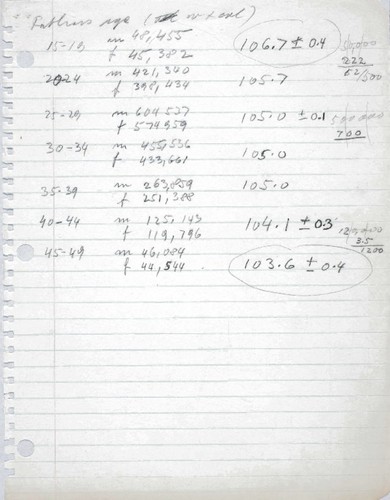 Fathers age (
15-19 m 48,455 106.7 ± 0.4
f 45,382
222
20-24 m 421,340 105.7
f 398,434
25-29 m 604,527 105.0 ± 0.1
f 574,959 700
30-34 m 455,536 105.0
f 433,661
35-39 m 263,859 105.0
f 251,388
40-44 m 125,143 104.1 ± 0.3
f 119,796 3.5
1200
45-49 m 46,084 103.6 ± 0.4
f 44,544